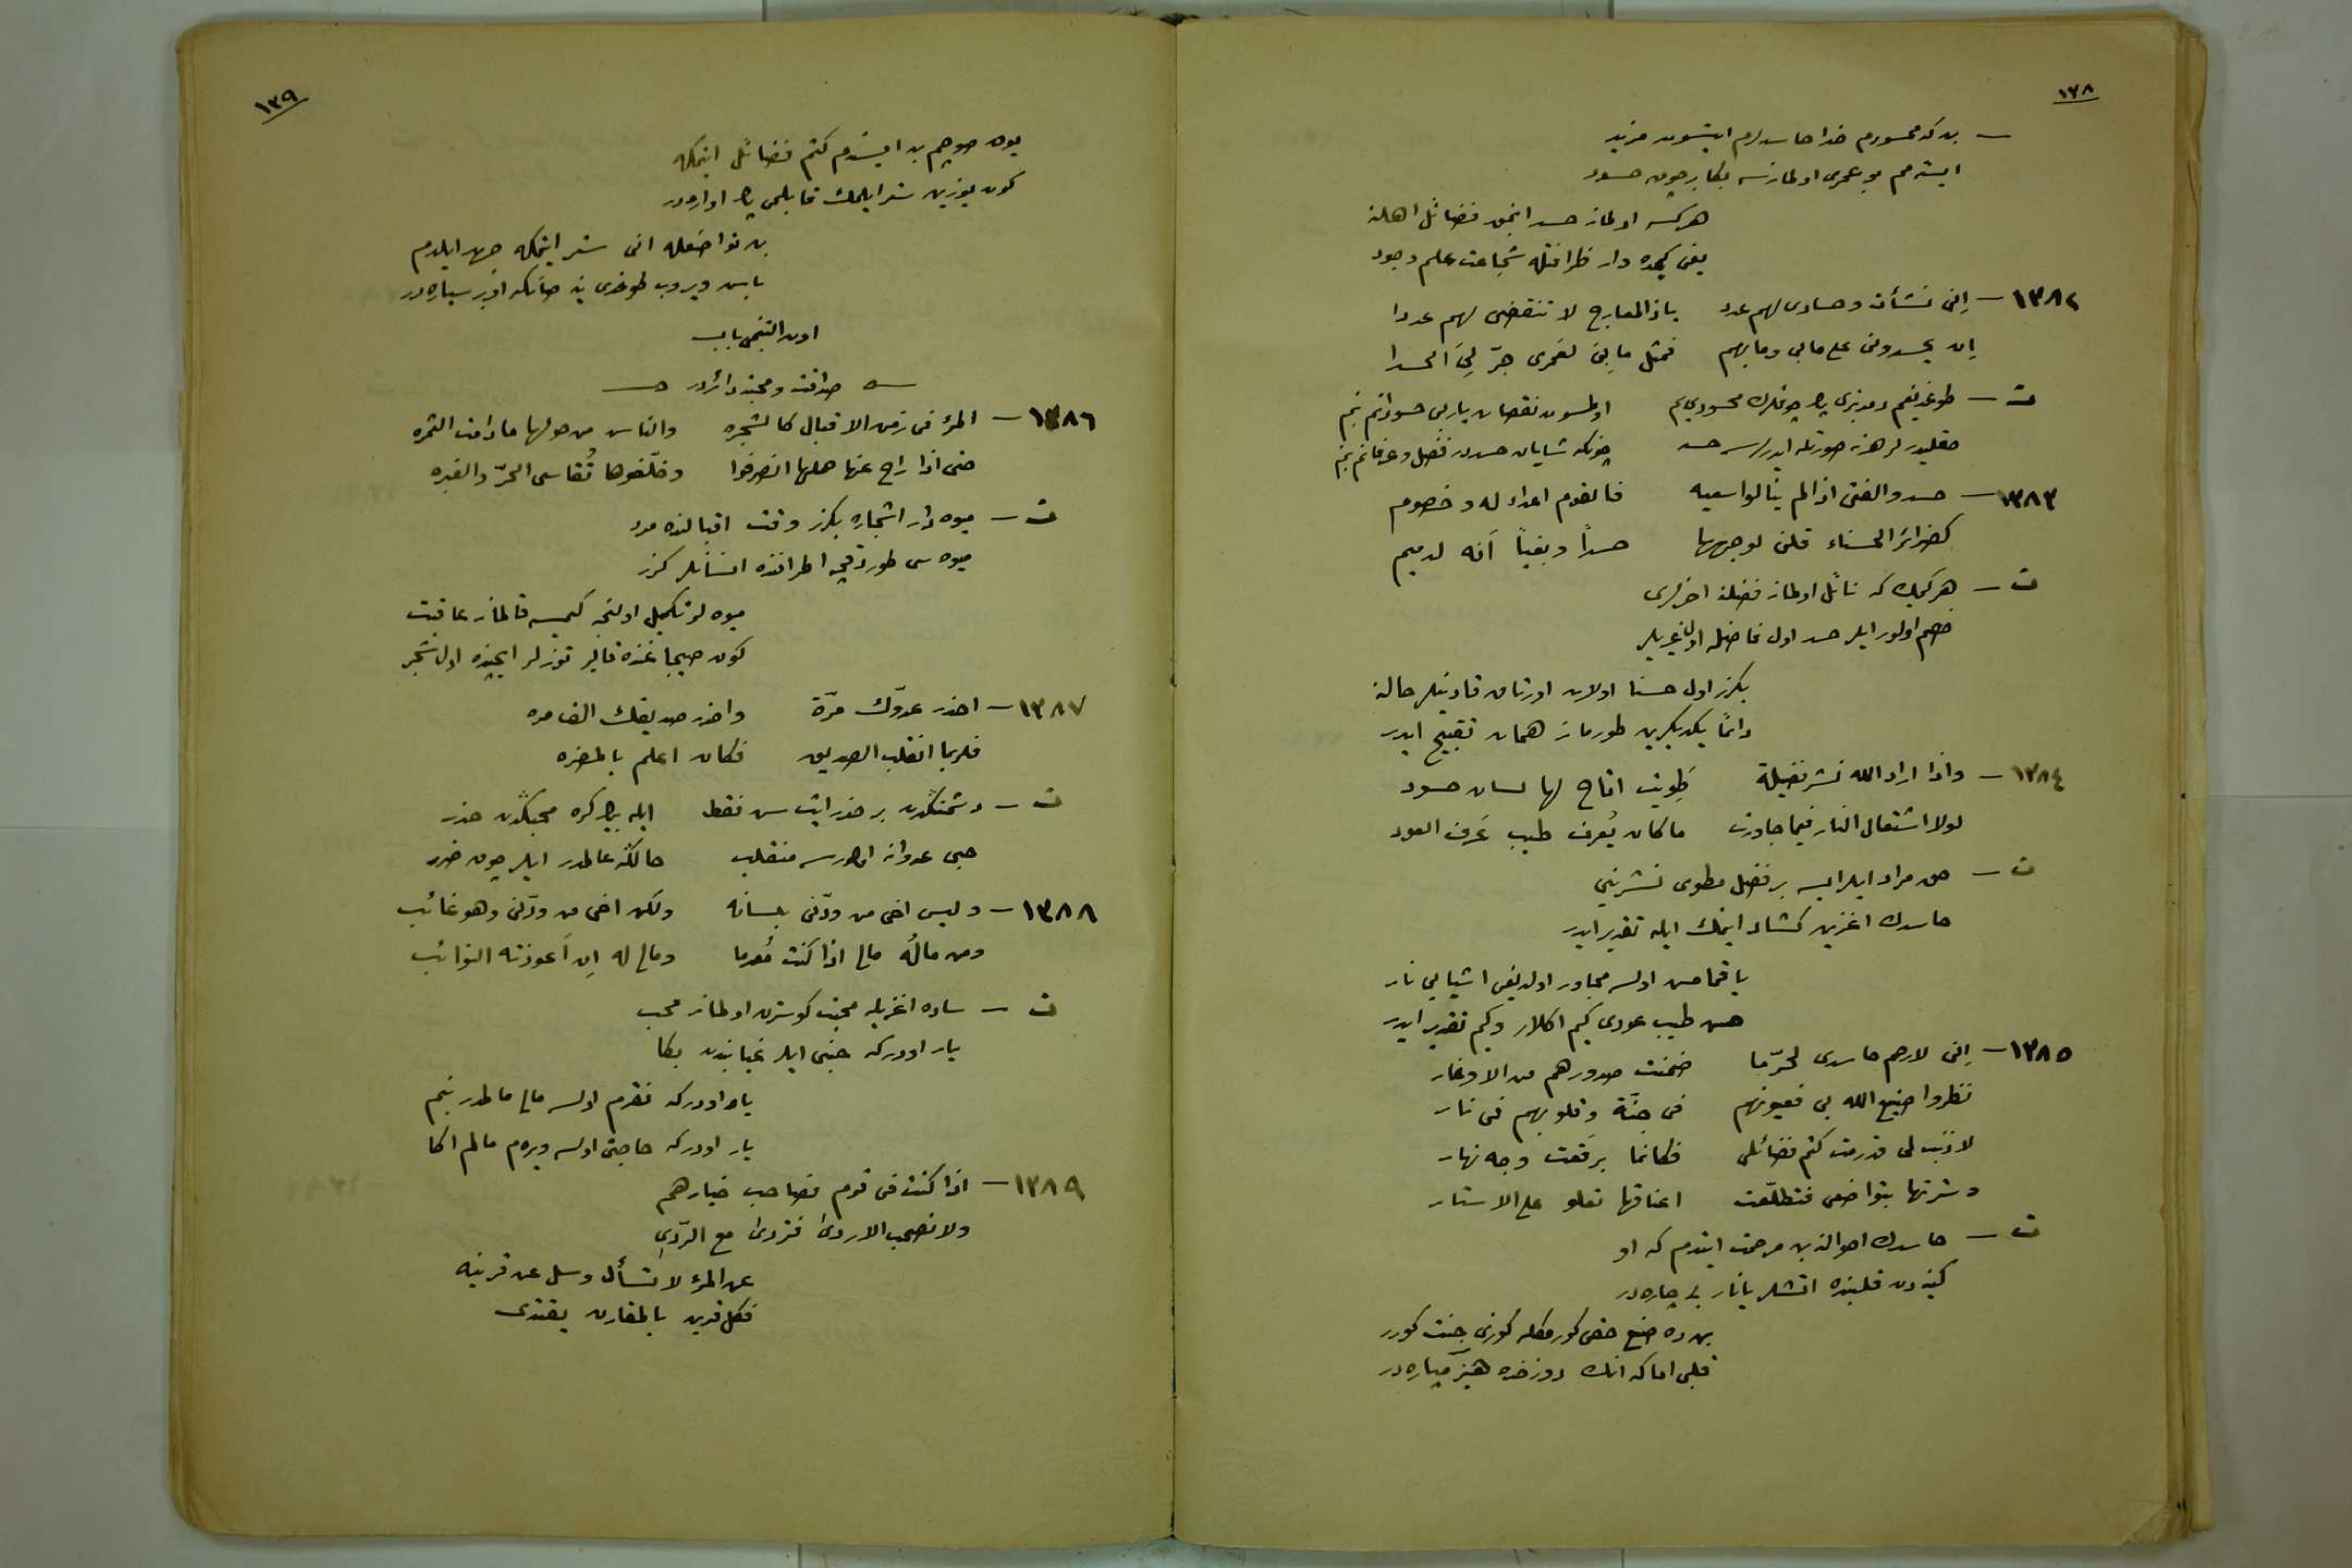 ١٣٨
— بن كه محسودم خدا حاسدلرم ايتسون مزيد
ايسته مم بو عمرى اولمازسه بكا برچوق حسود
هركسه اولماز حسد انجق فضائل اهلنه
يعنى كيمده وار ظرافتله شجاعت علم وجود
١٣٨٢ — إنى نشأت وحسادى لهم عدد ياذا المعارج لا تنقضى لهم عددا
إن يحسدونى على مابى ومابهم فمثل مابى لعمرى جرّ لى الحسدا
ت — طوغديغم دمدنبرى پك چوقلرك محسودى يم اولمسون نقصان ياربى حسودانم بنم
چونكه شايان حسددر فضل وعرفانم بنم
١٣٨٣ — حسدوا الفتى اذا لم ينالوا سعيه فالقوم اعداء له وخصوم
كضرائر الحسناء قلن لوجهها حسداً وبغياً أنه لدميم
ت — هر كيمك كه نائل اولماز فضلنه اخرلرى
خصم اولور ايلر حسد اول فاضله اول غيريلر
بكزر اول حسنا اولان اورتاق قادينلر حالنه
دائماً يكديكرين طورماز همان تقبيح ايدر
١٣٨٤ — واذا اراد الله نشر فضيلة طُويت اتاح لها لسان حسود
لولا اشتعال النار فيما جاورت ما كان يُعرف طيب عَرف العود
ت — حق مراد ايلر ايسه بر فضل مطوى نشرينى
حاسدك اغزين كشاد ايتمك ايله تقدير ايدر
ياقمامش اولسه مجاور اولديغى اشيايى نار
حسن طيب عودى كيم اكلار وكيم تقدير ايدر
١٣٨٥ — إنى لارحم حاسدى لحرّما ضمنت صدورهم من الاوغار
نظروا صنيع الله بى فعيونهم فى جنّة وقلوبهم فى نار
لا ذنب لى قد رمت كتم فضائلى فكانما برقعت وجه نهار
وسترتها بتواضعى فتطلّعت اعناقها تعلو على الاستار
ت — حاسدك احوالنه بن مرحمت ايتدم كه او
كينه دن قلبنده اتشلر يانار بى چاره در
بن ده صنع حقى كورمكله كوزى جنت كورر
قلبى اما كه انك دوزخده هيزم پاره در
١٣٩
يوق صوچم بن ايستدم كتم فضائل ايتمكه
كون يوزين ستر ايلمك قابلمى پك اواره در
بن تواضعله انى ستر ايتمكه جهد ايلدم
باش ويروب طوغدى ينه صانكه اخير سياره در
اون التنجى باب
صداقت ومحبته دائردر
١٣٨٦ — المرء فى زمن الاقبال كالشجره والناس من حولها مادامت الثمره
حتى اذا راح عنها حملها انصرفوا وخلّفوها تُقاسى الحرّ والغبره
ت — ميوه دار اشجاره بكزر وقت اقبالنده مرد
ميوه سى طوردقچه اطرافنده انسانلر كزر
ميوه لر تكميل اولنجه كيمسه قالماز عاقبت
كون صيجاغنده قالير توزلر ايچنده اول شجر
١٣٨٧ — احذر عدوّك مرّة واحذر صديقك الف مره
فلربما انقلب الصديق فكان اعلم بالمضره
ت — دشمنكدن بر حذر ايت سن فقط ايله بيك كره محبكدن حذر
حبى عدوانه اولورسه منقلب حالكه عالمدر ايلر چوق ضرر
١٣٨٨ — وليس اخى من ودّنى بلسانه ولكن اخى من ودّنى وهو غائب
ومن مالُه مالى اذا كنت مُعدما ومالى له إن أعوذته النوائب
ت — ساده اغزيله محبت كوسترن اولماز محب
يار اودركه حبنى ايلر غيابندن بكا
يار اودركه فقرم اولسه مالى مالمدر بنم
يار اودركه حاجتى اولسه ويره م مالم اكا
١٣٨٩ — اذا كنت فى قوم فصاحب خيارهم
ولا تصحب الاردى فتردى مع الرّدى
عن المرء لا تسأل وسل عن قرينه
فكل قرين بالمقارن يقتدى